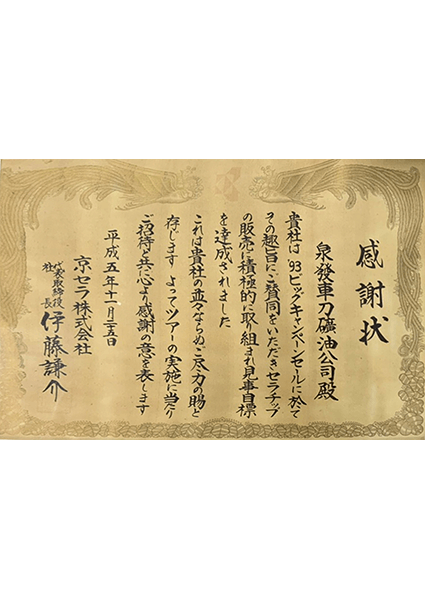 感謝状
泉發車刀礦油公司殿
貴社は'93ビッグキャンペーンセールに於て
その趣旨にご賛同をいただきセラチップ
の販売に積極的に取り組まれ見事目標
を達成されました
これは貴社の並々ならぬご尽力の賜と
存じます よってツアーの実施に当たり
ご招待と共に心より感謝の意を表します
平成五年十一月二五日
京セラ株式会社
代表取締役
社長 伊藤謙介